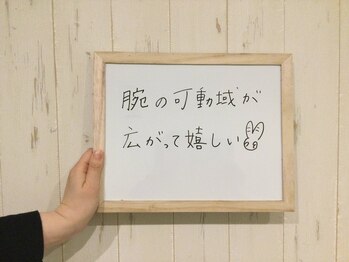 腕の可動域が
広がって嬉しい